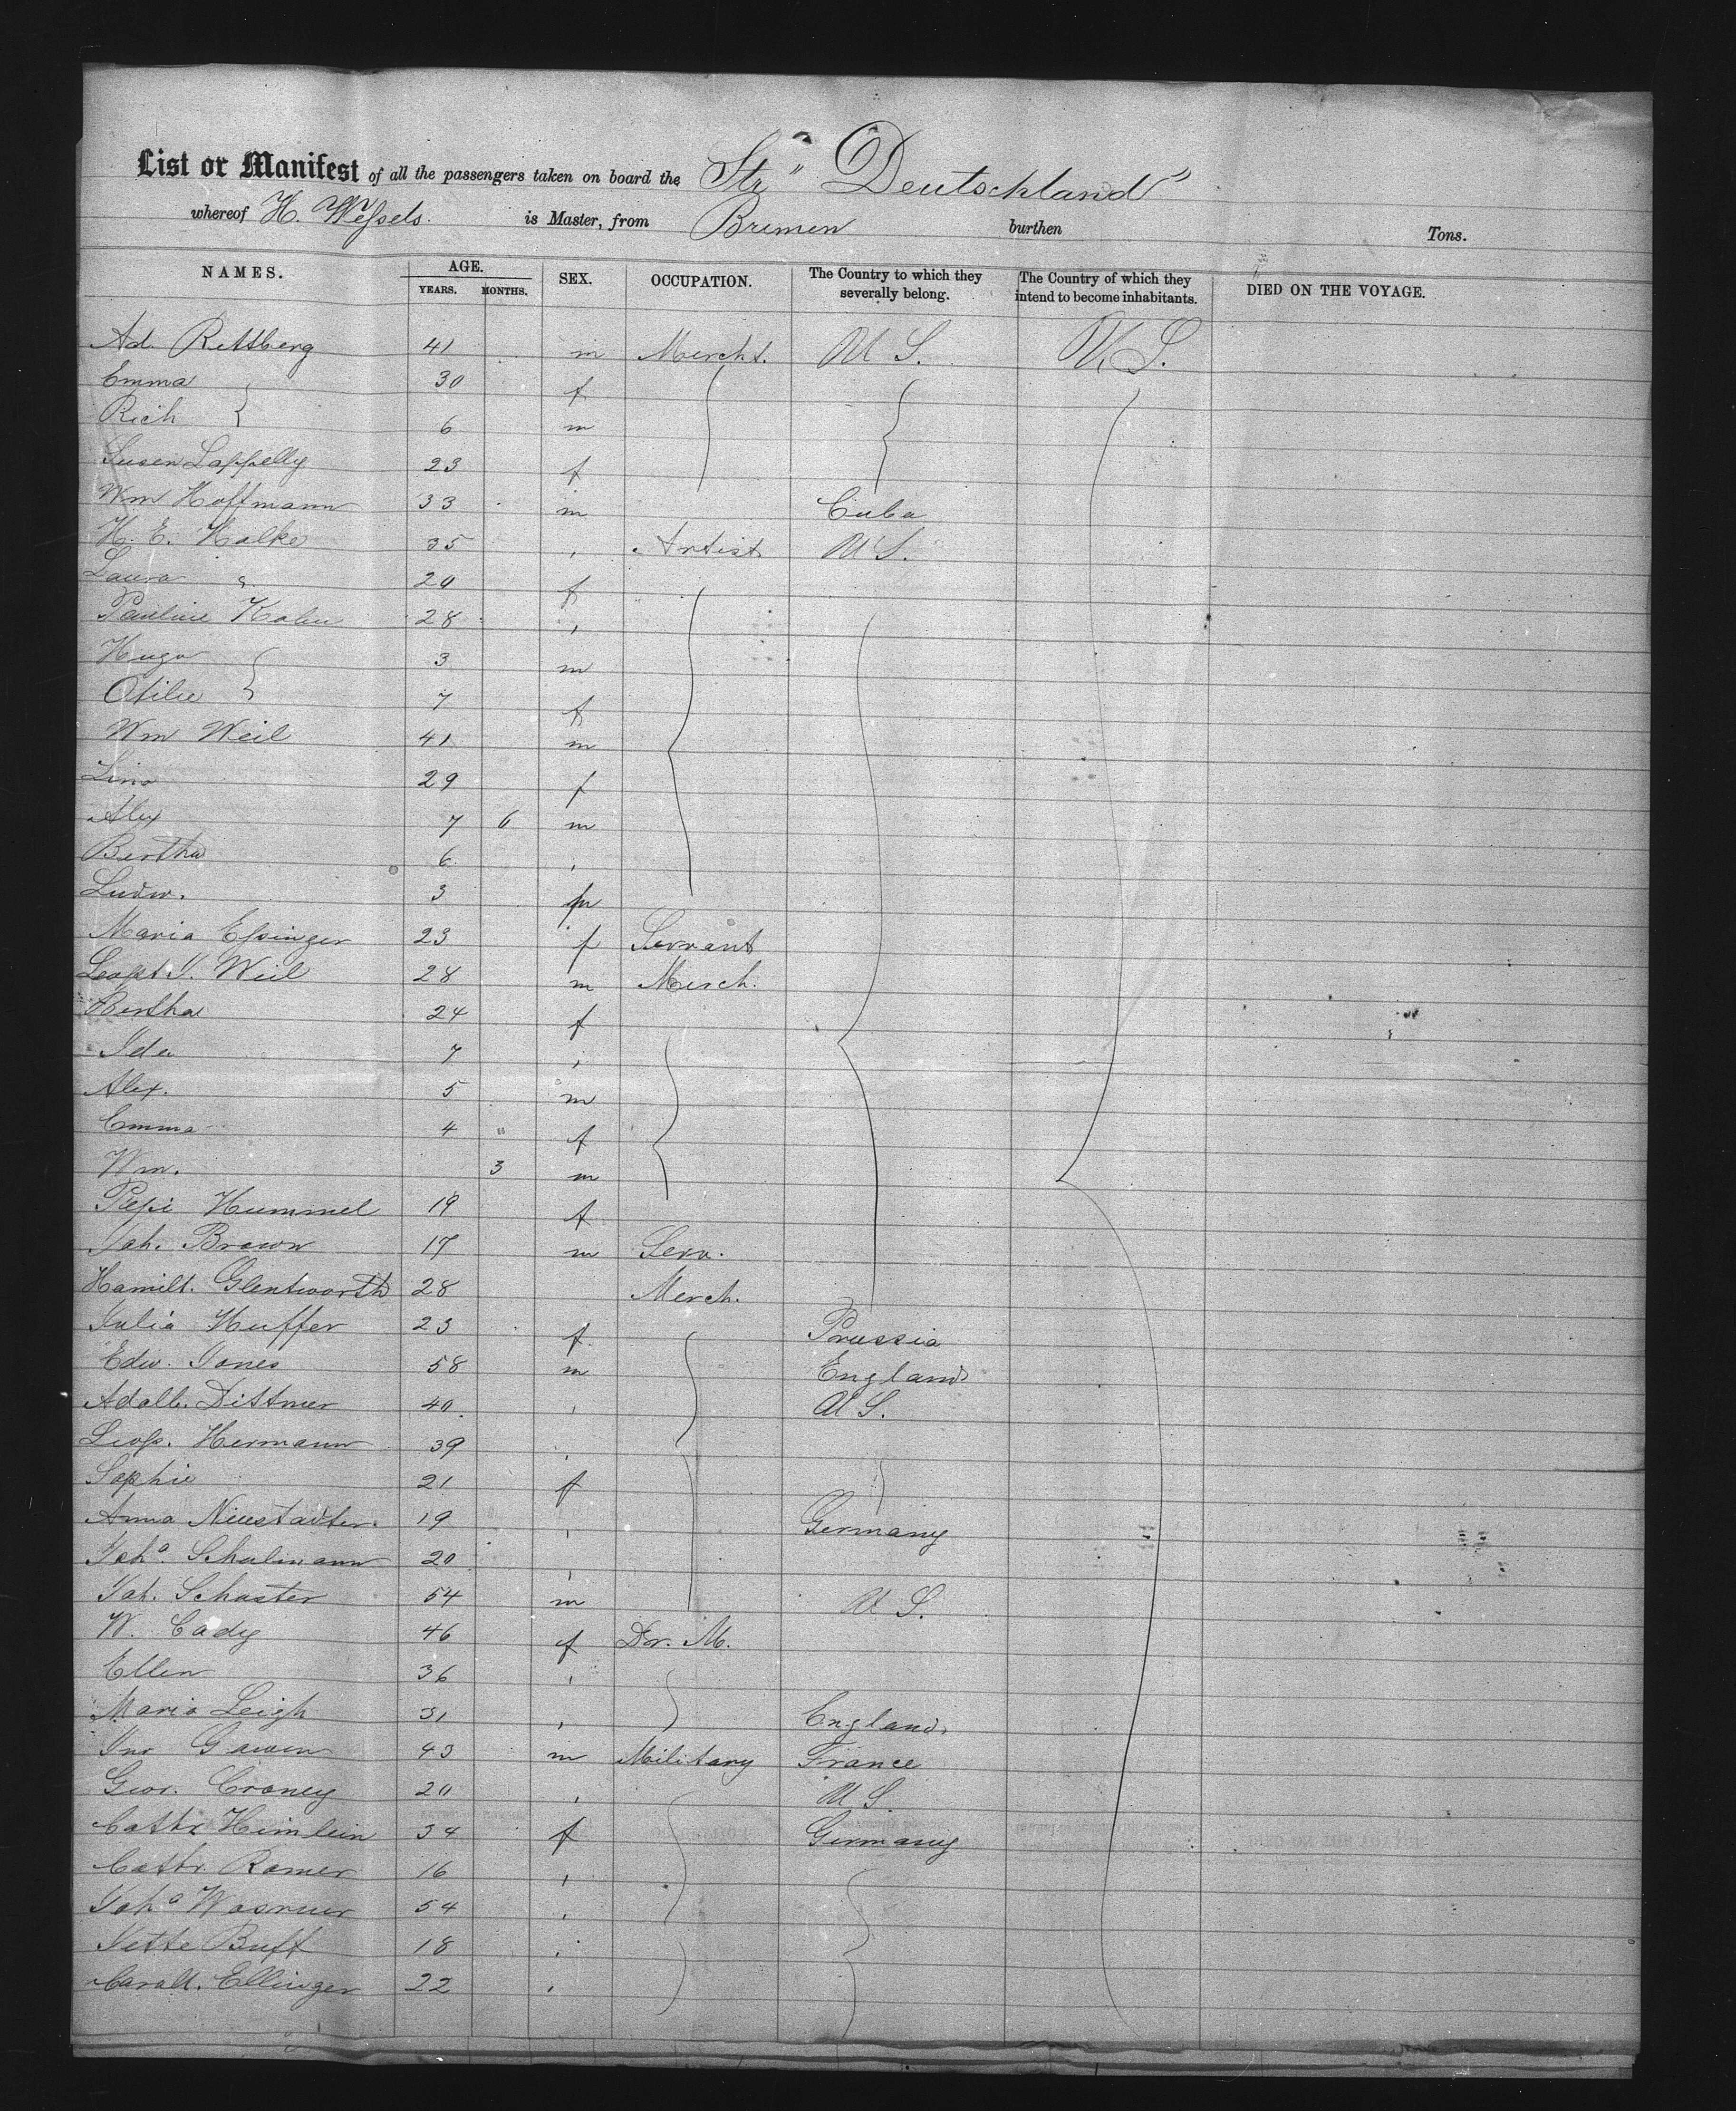 List or Manifest of all the passengers taken on board the Str "Deutschland"
whereof H. Wessels. is Master, from Bremen burthen Tons.
NAMES. AGE. YEARS. MONTHS. SEX. OCCUPATION. The Country to which they severally belong. The Country of which they intend to become inhabitants. DIED ON THE VOYAGE.
Ad. Rettberg 41 m Mercht. U S. U. S.
Emma 30 f
Rich 6 m
Susen Lappelly 23 f
Wm Hoffmann 33 m Cuba
H. E. Halke 35 , Artist U S.
Laura " 20 f
Pauline Kahn 28 ,
Hugo 3 m
Otilie 7 f
Wm Weil 41 m
Lina 29 f
Alex 7 6 m
Bertha 6 ,
Ludw. 3 m
Maria Essinger 23 f Servant
Leop. Weil 28 m Merch.
Bertha 24 f
Ida 7 ,
Alex. 5 m
Emma 4 " f
Wm. 3 m
Pepi Hummel 19 f
Joh. Brown 17 m Serv.
Hamilt. Glentworth 28 Merch.
Julia Huffer 23 f Prussia
Edw. Jones 58 m England
Adolb. Dittmer 40 , U S.
Leop. Hermann 39 ,
Sophie 21 f
Anna Neustadter. 19 , Germany
Joha. Schulmann 20 ,
Joh. Schuster 54 m U S.
W. Cady 46 f Dr. M.
Ellen 36 ,
Maria Leigh 31 , England.
Jno Gawen 43 m Military France
Geor. Croney 20 , U S
Cathr Heimlein 34 f Germany
Cathr. Romer 16 ,
Joha Wasmer 54 ,
Jette Buff 18 ,
Ellinger 22 ,